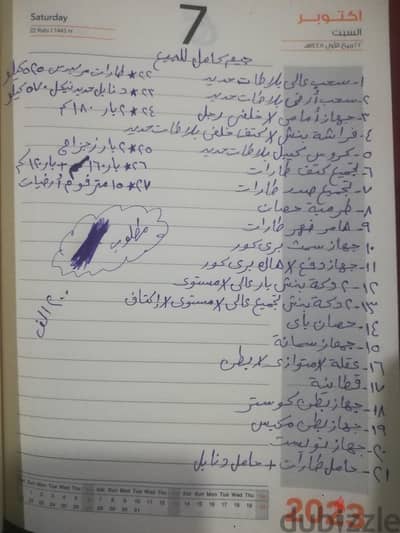 Saturday
22 Rabi I 1445 H
7
اكتوبر
السبت
جيم كامل للبيع
١- سحب عالى بلاطات حديد
٢- سحب أرضى بلاطات حديد
٣- جهاز أمامى × خلفى رجل
٤- فراشة بنش × كتف خلفى بلاطات حديد
٥- كروس كيبل بلاطات حديد
٦- تجميع كتف طارات
٧- تجميع صدر طارات
٨- طرمبة حصان
٩- هامر ظهر طارات
١٠- جهاز سمث برى كور
١١- جهاز دفع × هاك برى كور
١٢- ٢ دكة بنش بار عالى × مستوى
١٣- ٢ دكة بنش تجميع عالى × مستوى × أكتاف
١٤- حصان باى
١٥- جهاز سمانة
١٦- عقلة × متوازى × بطن
١٧- قطاينة
١٨- جهاز بطن كوستر
١٩- جهاز بطن مكبس
٢٠- جهاز تويست
٢١- حامل طارات + حامل دنابل
٢٢* طارات مرسيدس ٥٢٥ كيلو
٢٣* دنابل حديد نيكل ٥٧٠ كيلو
٢٤* ٢ بار ١٨٠ كم
٢٥* ٢ بار زجزاجى
٢٦* بار ١٦٠ كم + بار ١٢٠ كم
٢٧* ١٥ متر فوم أرضيات
مطلوب
٢٠٠ الف
Sun Mon Tue Wed Thu Fri Sat
2023
dubizzle